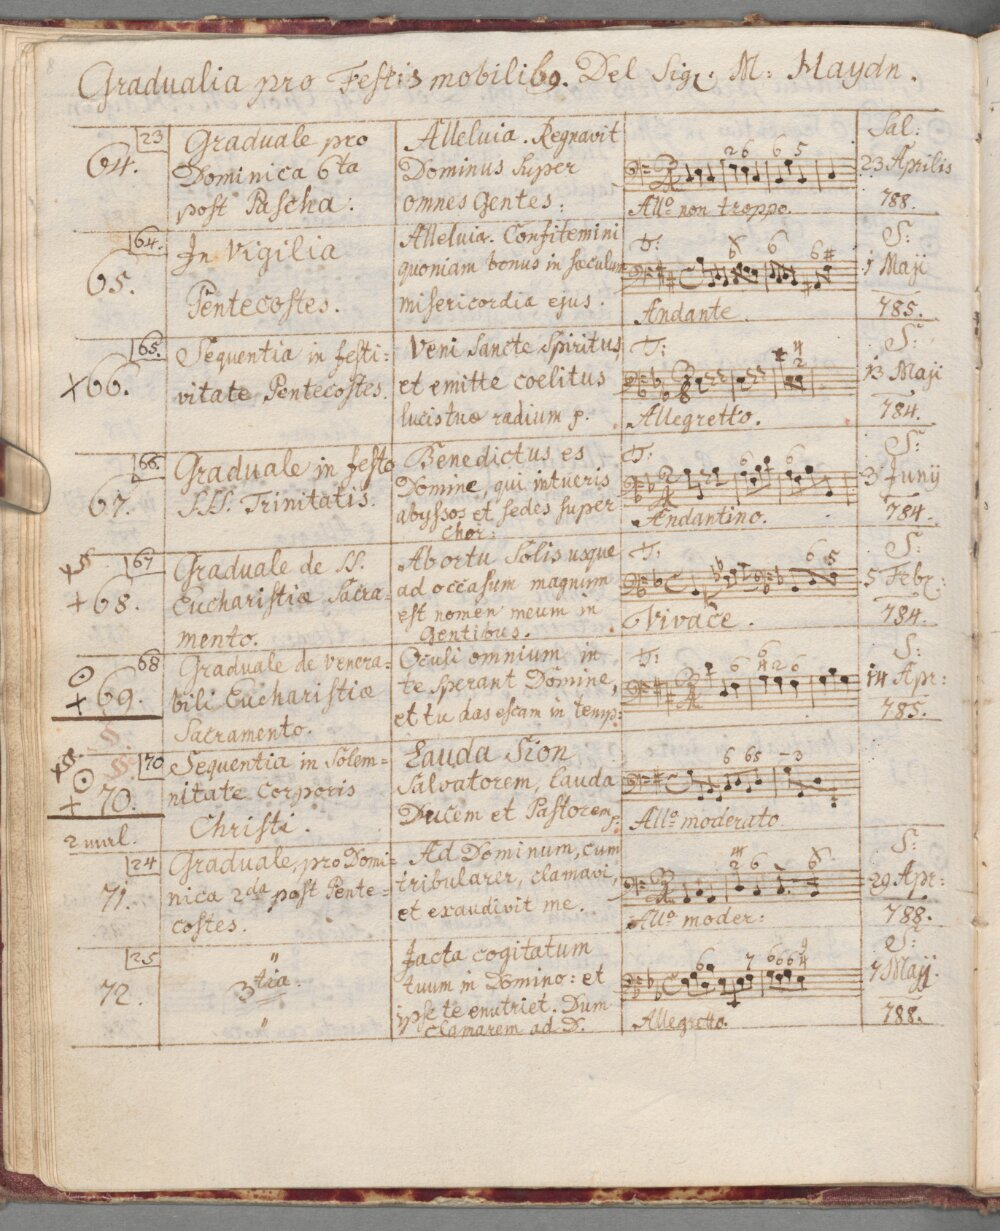 Gradualia pro Festis mobilib9. Del Sig: M: Haydn.
23
64.
Graduale pro
Dominica 6ta
post Pascha.
Alleluia. Regnavit
Dominus super
omnes Gentes:
26 6 5
Allo non troppo.
Sal:
23 Aprilis
788.
64.
65.
In Vigilia
Pentecostes.
Alleluia. Confitemini
quoniam bonus in sæculum
misericordia ejus.
T:
6 6#
Andante.
S:
1 Maji
785.
65.
+66.
Sequentia in festi=
vitate Pentecostes.
Veni Sancte Spiritus,
et emitte coelitus
lucis tuæ radium p.
T:
4
2
Allegretto.
S:
13 Maji
784.
66
67.
Graduale in festo
SSS. Trinitatis.
Benedictus es
Domine, qui intueris
abyssos et sedes super
Cher:
T:
6 6
Andantino.
S:
3 Junij
784.
67
+68.
Graduale de SS.
Eucharistiæ Sacra=
mento.
Ab ortu Solis usque
ad occasum magnum
est nomen meum in
Gentibus.
T:
6 5
Vivace.
S:
5 Febr:
784.
68
+69.
Graduale de venera=
bili Eucharistiæ
Sacramento.
Oculi omnium in
te sperant Domine,
et tu das escam in temp:
T:
6 6
4 2 6
S:
14 Apr:
785.
S.
70
+70.
2 mal.
Sequentia in Solem=
nitate Corporis
Christi.
Lauda Sion
Salvatorem, lauda
Ducem et Pastorem p.
6 65 - 3
Allo moderato
24
71.
Graduale, pro Domi=
nica 2da post Pente=
costes.
Ad Dominum, cum
tribularer, clamavi,
et exaudivit me.
4
2 6
Allo moder:
S:
29 Apr:
788.
25
72.
"
3tia.
"
Jacta cogitatum
tuum in Domino: et
ipse te enutriet. Dum
clamarem ad D.
6 7 666 4
Allegretto.
S:
7 Maji.
788.